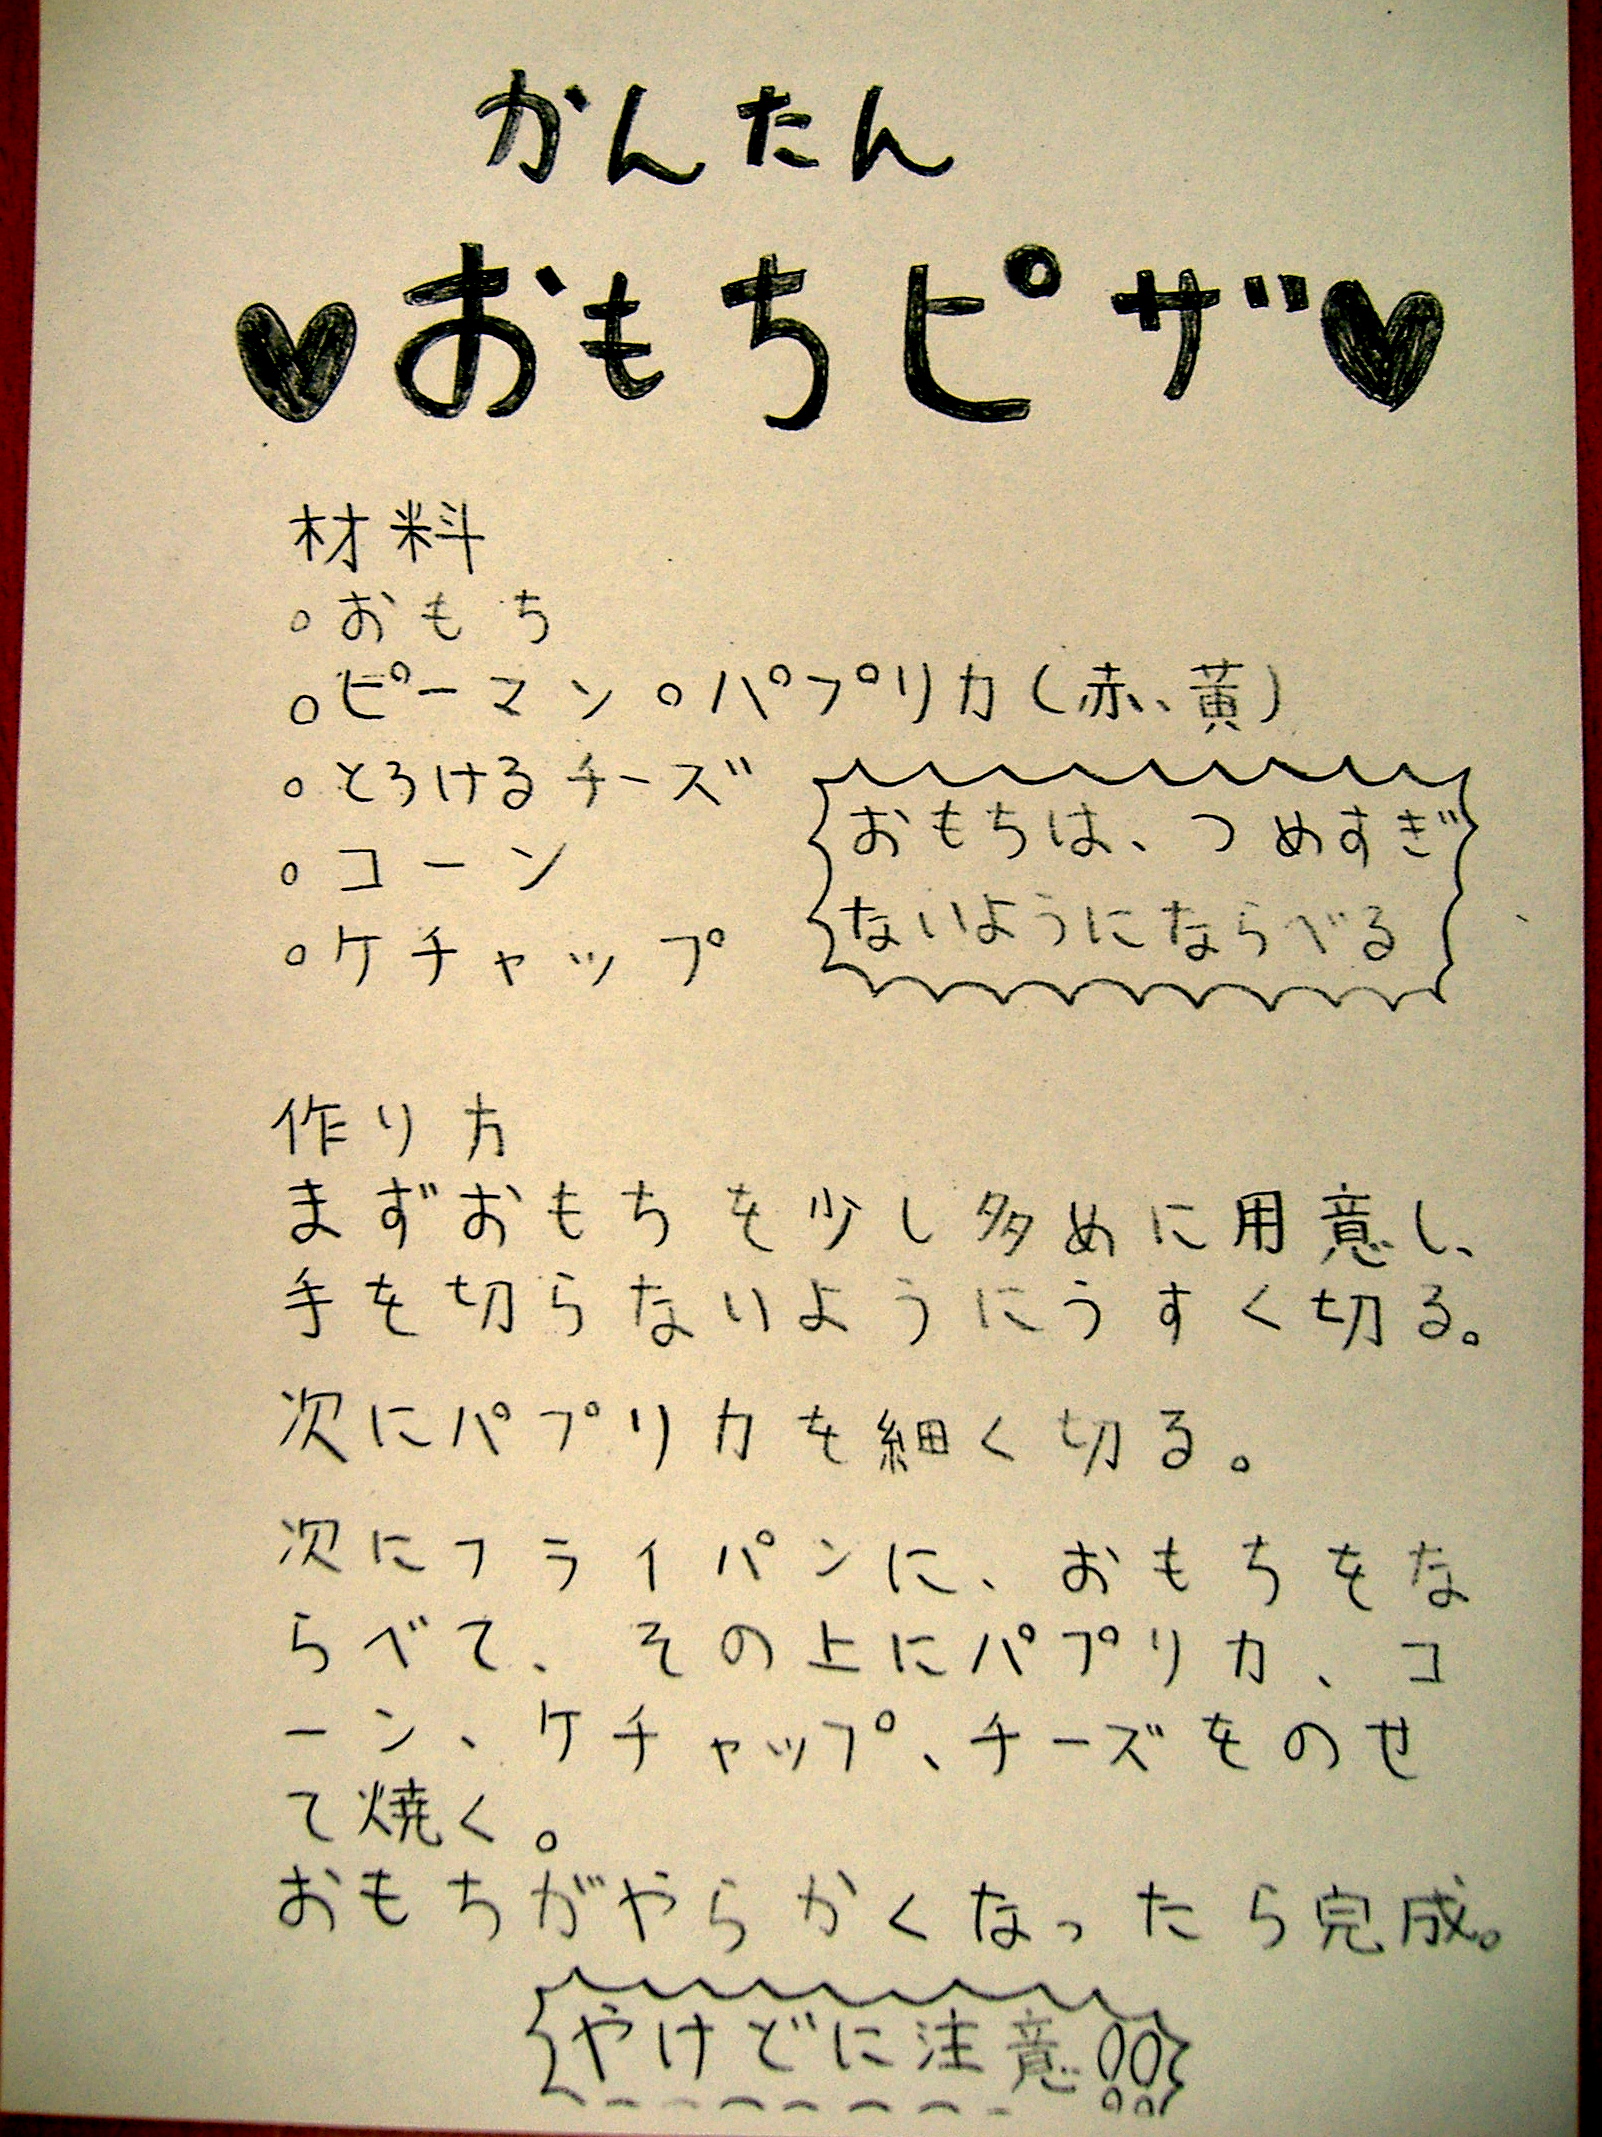 かんたん
♥おもちピザ♥
材料
○おもち
○ピーマン○パプリカ(赤、黄)
○とろけるチーズ
○コーン
○ケチャップ
おもちは、つめすぎ
ないようにならべる
作り方
まずおもちを少し多めに用意し、
手を切らないようにうすく切る。
次にパプリカを細く切る。
次にフライパンに、おもちをな
らべて、その上にパプリカ、コ
ーン、ケチャップ、チーズをのせ
て焼く。
おもちがやらかくなったら完成。
やけどに注意!!